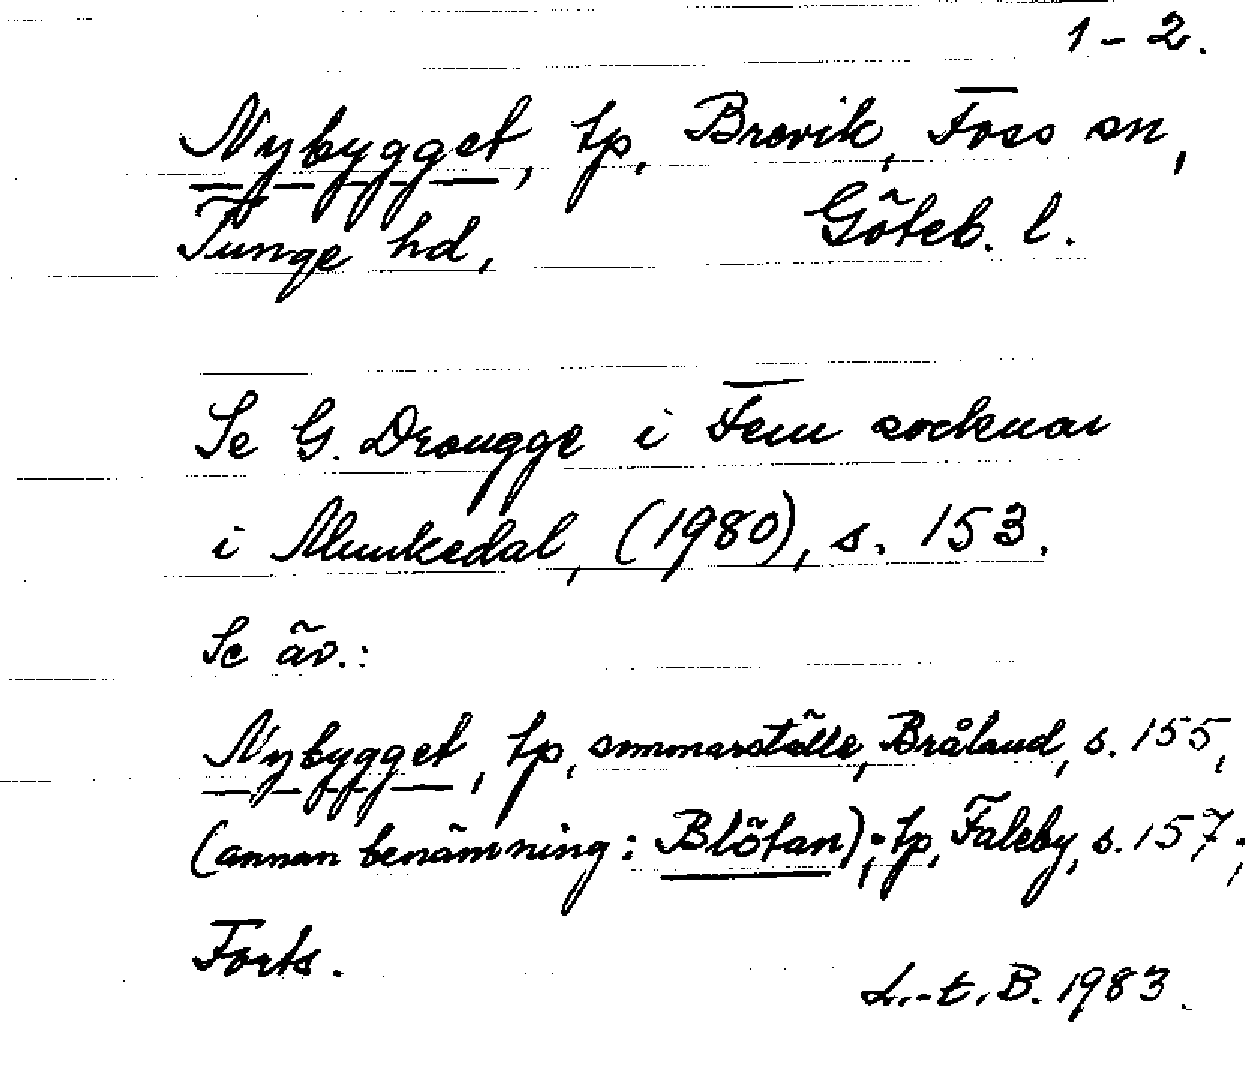 1-2.
Nybygget, tp, Brevik, Foss sn,
Tunge hd, Göteb. l.
Se G. Drougge i Fem socknar
i Munkedal, (1980), s. 153.
Se äv.:
Nybygget, tp, sommarställe, Bråland, s. 155,
(annan benämning: Blötan); tp, Faleby, s. 157;
Forts.
L.-t. B. 1983.